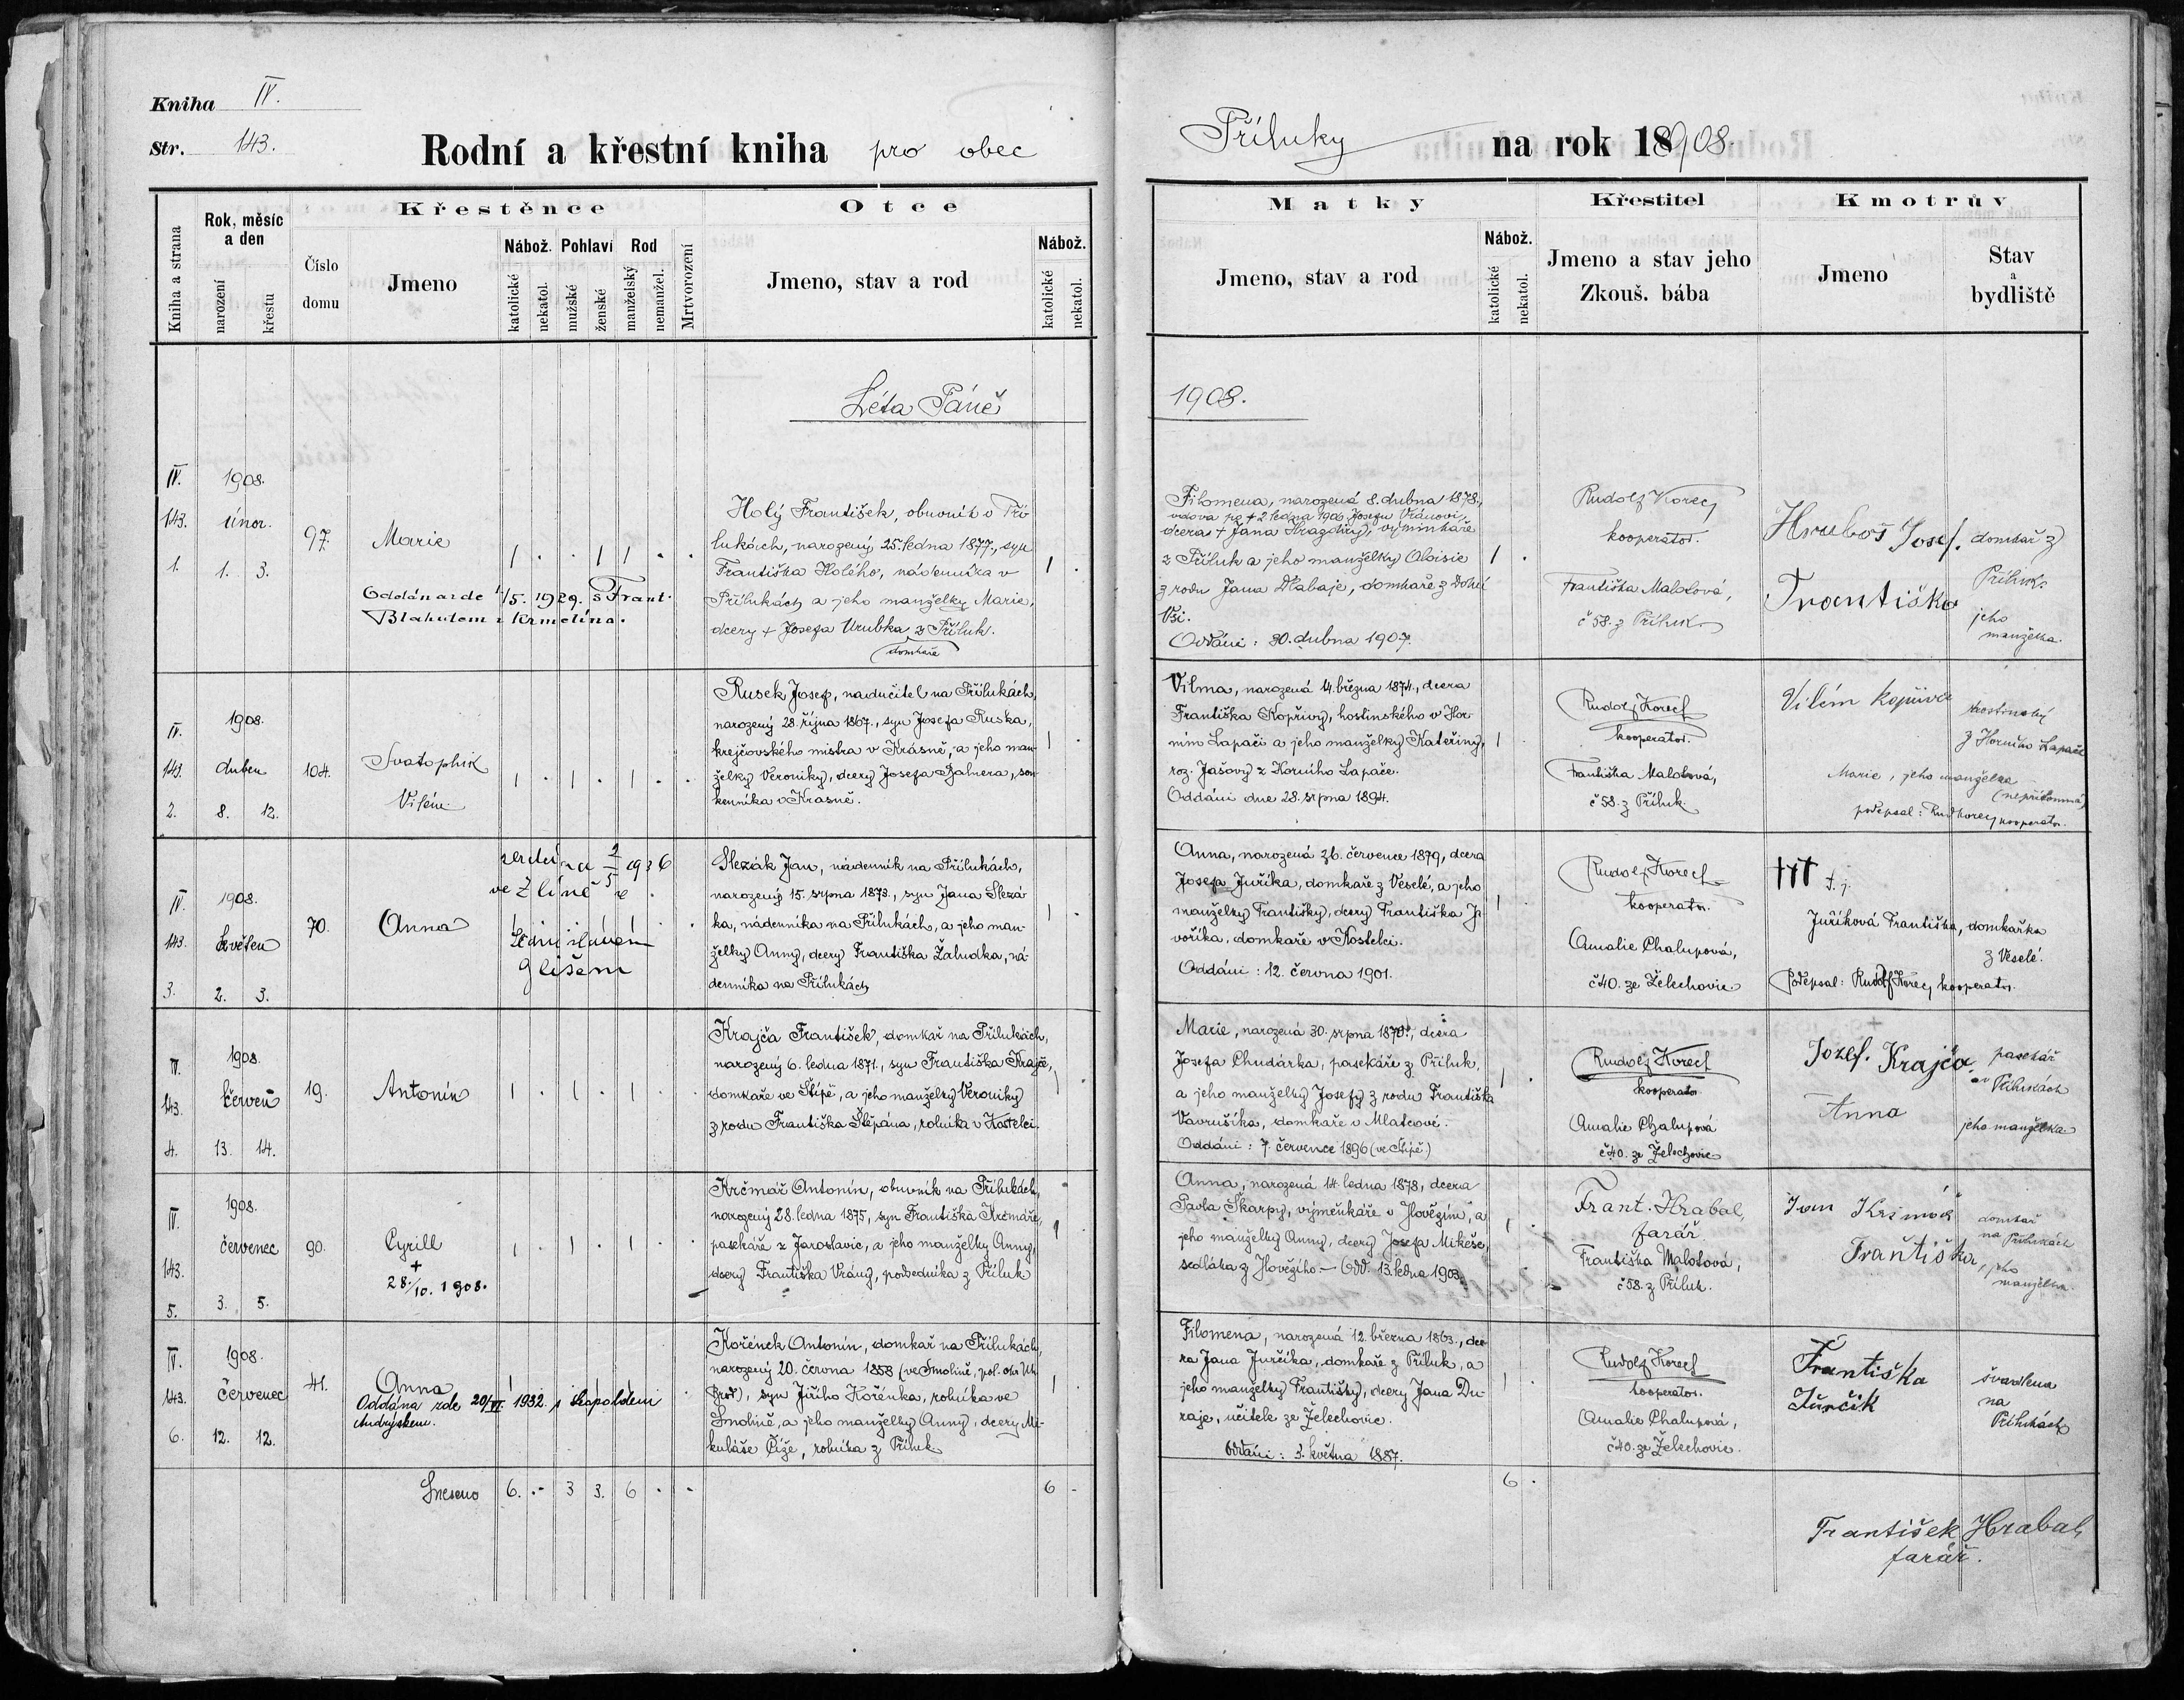 Kniha IV.
Str. 143.
Rodní a křestní kniha pro obec
Příluky na rok 18908.
Kniha a strana
Rok, měsíc a den
narození
křestu
Křestěnce
Číslo domu
Jmeno
Nábož.
katolické
nekatol.
Pohlaví
mužské
ženské
Rod
manželský
nemanžel.
Mrtvorození
Otce
Jmeno, stav a rod
Nábož.
katolické
nekatol.
Matky
Jmeno, stav a rod
Nábož.
katolické
nekatol.
Křestitel
Jmeno a stav jeho
Zkouš. bába
Kmotrův
Jmeno
Stav
a
bydliště
Léta Páně
1908.
IV.
143.
1.
1908.
únor.
1. 3.
97.
Marie
Oddána zde 1/5. 1929. s Frant.
Blahutem z Křmelína.
Holý František, obuvník v Pří-
lukách, narozený 25. ledna 1877., syn
Františka Holého, nádenníka v
Přílukách a jeho manželky Marie,
dcery + Josefa Vrubka z Příluk.
domkaře
Filomena, narozená 8. dubna 1878.,
vdova po + 2. ledna 1906 Josefu Vránovi,
dcera + Jana
z Příluk a jeho manželky Aloisie
z rodu Jana Dlabaje, domkaře z Dolní
Vsi.
Oddáni: 30. dubna 1907.
Rudolf Korec
kooperator.
Františka Malotová,
č 58. z Příluk
Hruboš Josef. domkař z
Příluk.
Františka
jeho
manželka.
IV.
143.
2.
1908.
duben
8. 12.
104.
Svatopluk
Vilém
Rusek Josef, nadučitel na Přílukách,
narozený 28. října 1867., syn Josefa Ruska,
krejčovského mistra v Krásně, a jeho man-
želky Veroniky, dcery Josefa sou-
kenníka v Krásně.
Vilma, narozená 14. března 1874., dcera
Františka Kopřivy, hostinského v Hor-
ním Lapači a jeho manželky Kateřiny,
roz. Jašovy z Horního Lapače.
Oddáni dne 28. srpna 1894.
Rudolf Korec
kooperator.
Františka Malotová,
č 58. z Příluk.
Vilém Kopřiva hostinský
z Horního Lapače
Marie, jeho manželka
(nepřítomná)
podepsal: Rud Korec kooperator.
IV
143.
3.
1908.
květen
2. 3.
70.
Anna
1936
ve Zlíně
Slezák Jan, nádenník na Přílukách,
narozený 15. srpna 1873., syn Jana Slezá-
ka, nádenníka na Přílukách, a jeho man-
želky Anny, dcery Františka Žaludka, ná-
denníka na Přílukách
Anna, narozená 26. července 1879, dcera
Josefa Juříka, domkaře z Veselé, a jeho
manželky Františky, dcery Františka Ja-
voříka, domkaře v Kostelci.
Oddáni: 12. června 1901.
Rudolf Korec
kooperator.
Amalie Chalupová,
č 40. ze Želechovic
+++ t. j.
Juříková Františka, domkářka
z Veselé.
Podepsal: Rudolf Korec, kooperator.
IV.
143.
4.
1908.
červen
13. 14.
19.
Antonín
Krajča František, domkař na Přílukách,
narozený 6. ledna 1871., syn Františka Krajče,
domkaře ve Štípě, a jeho manželky Veroniky
z rodu Františka Štěpána, rolníka v Kostelci.
Marie, narozená 30. srpna 1870., dcera
Josefa Chudárka, pasekáře z Příluk,
a jeho manželky Josefy z rodu Františka
Vavrušíka, domkaře v Mlatcově.
Oddáni: 7. července 1896 (ve Štípě.)
Rudolf Korec
kooperator
Amalie Chalupová
č 40. ze Želechovic
Josef. Krajča pasekář
na Přílukách
Anna
jeho manželka
IV.
143.
5.
1908.
červenec
3. 5.
90.
Cyrill
+
28./10. 1908.
Krčmář Antonín, obuvník na Přílukách,
narozený 28. ledna 1875, syn Františka Krčmáře,
pasekáře z Jaroslavic, a jeho manželky Anny,
dcery Františka Vrány, podsedníka z Příluk
Anna, narozená 14. ledna 1878, dcera
Pavla Škarpy, výměnkáře v Hovězím, a
jeho manželky Anny, dcery Josefa Mikeše,
sedláka z Hovězího. – Odd. 13. ledna 1903.
Frant. Hrabal,
farář
Františka Malotová,
č 58. z Příluk.
Jan domkař
na Přílukách
Františka, jeho
manželka.
IV.
143.
6.
1908.
červenec
12. 12.
41.
Anna
Oddána zde 20/VI 1932. s Leopoldem
Andrýskem.
Kořének Antonín, domkař na Přílukách,
narozený 20. června 1858 (ve Smolině, pol. okr. Uh.
Brod), syn Jiřího Kořénka, rolníka ve
Smolině, a jeho manželky Anny, dcery Mi-
kuláše Číže, rolníka z Příluk
Filomena, narozená 12. března 1863., dce-
ra Jana Jurčíka, domkaře z Příluk, a
jeho manželky Františky, dcery Jana Du-
raje, učitele ze Želechovic.
Oddáni: 3. května 1887.
Rudolf Korec
kooperator.
Amalie Chalupová,
č 40. ze Želechovic.
Františka
Jurčík
švadlena
na
Přílukách
Sneseno 6. . 3 3. 6 . . 6 . 6 .
František Hrabal,
farář.